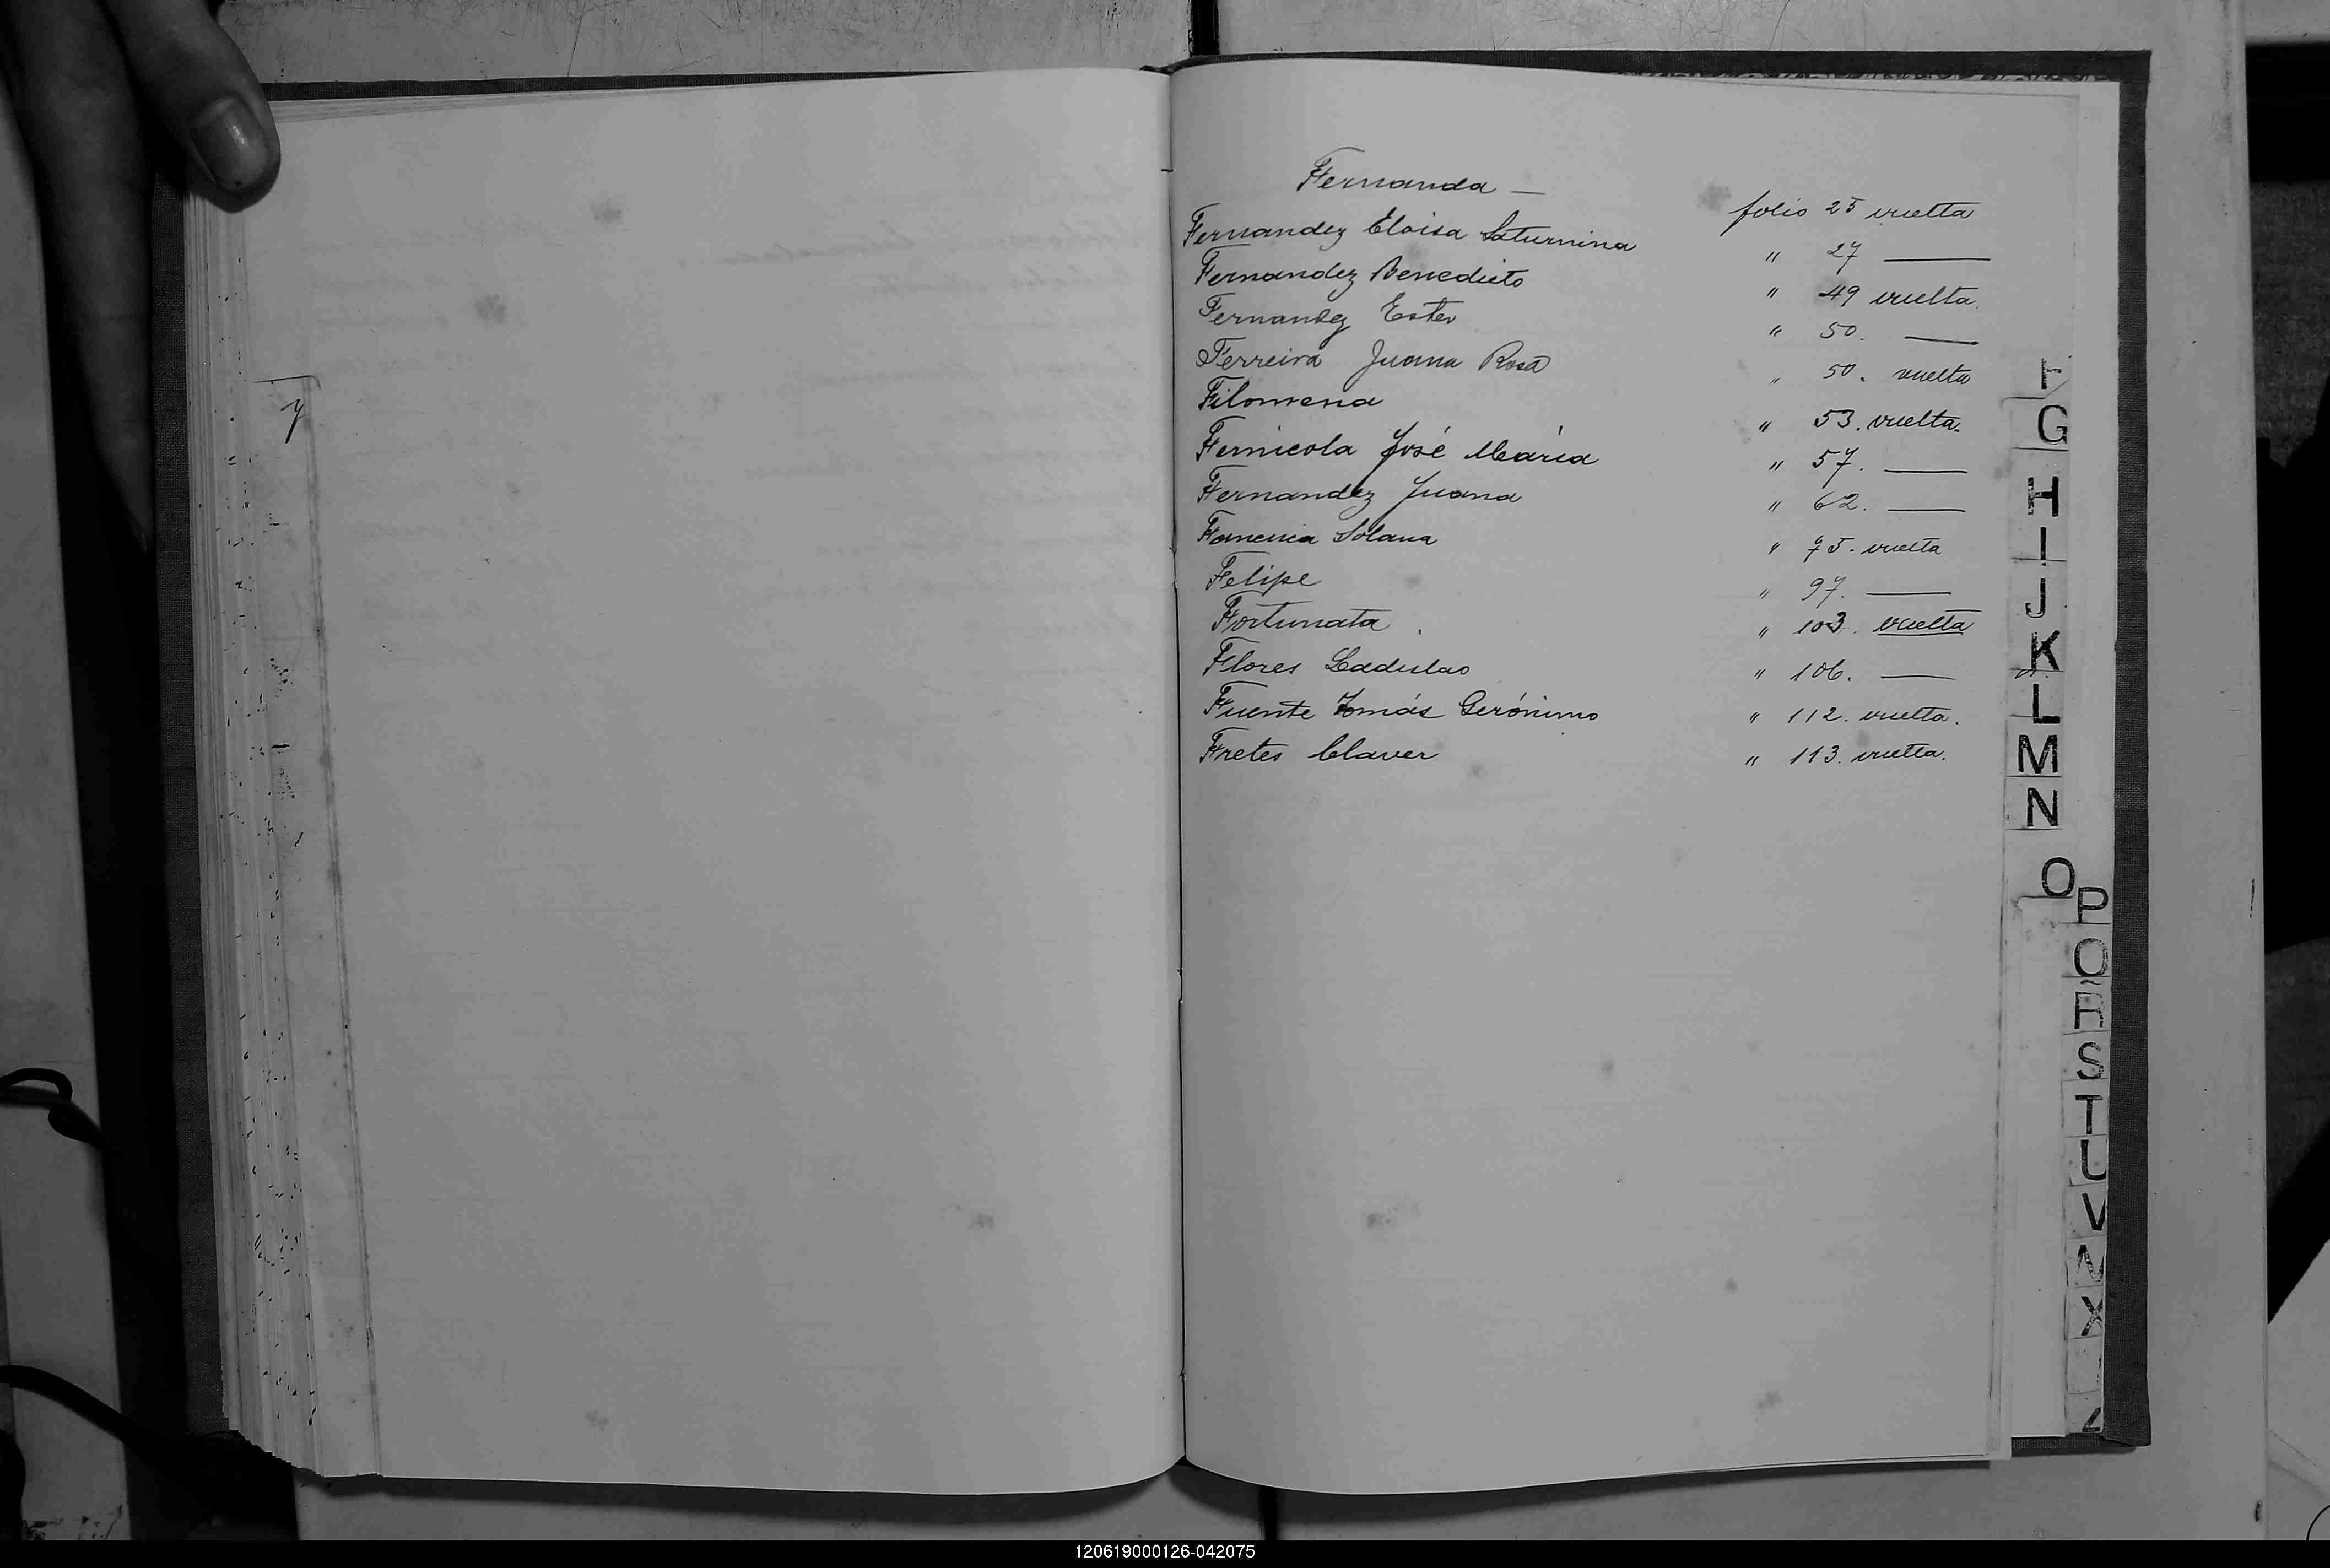 Fernanda — folio 25 vuelta
Fernandez Eloisa Saturnina " 27 —
Fernandez Benedicto " 49 vuelta.
Fernandez Ester " 50. —
Ferreira Juana Rosa " 50. vuelta
Filomena " 53. vuelta.
Fernicola José María " 57. —
Fernandez Juana " 62. —
Solana " 75. vuelta
Felipe " 97. —
Fortunata " 103. vuelta
Flores Ladislao " 106. —
Fuente Tomás Gerónimo " 112. vuelta.
Fretes Claver " 113. vuelta.
F
G
H
I
J
K
L
M
N
O
P
Q
R
S
T
U
V
X
Z
120619000126-042075